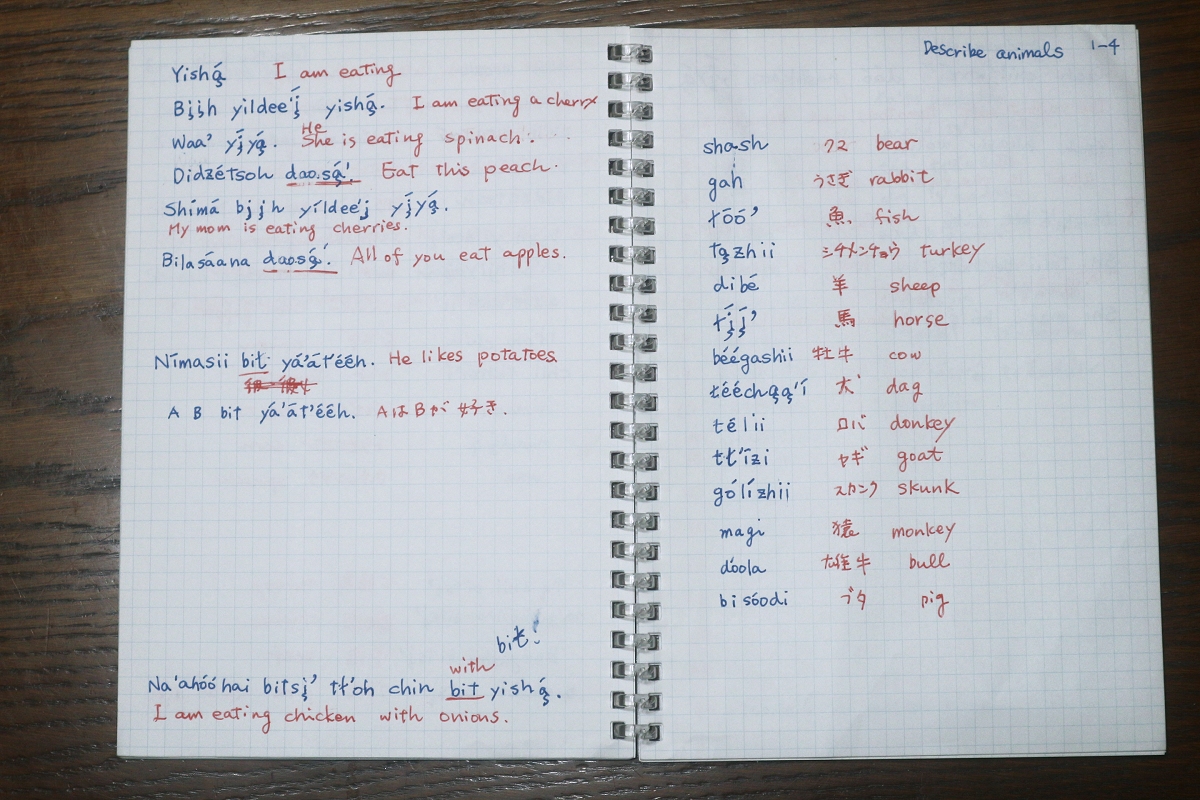 Yishą́ I am eating
Bįįh yildee'į́ yishą́. I am eating a cherry
He
Waa' yį́yą́. She is eating spinach.
Didzétsoh daosą́'. Eat this peach.
Shímá bįįh yíldee'į yį́yą́.
My mom is eating cherries.
Bilasáana daosą́'. All of you eat apples.
Nímasii bił yá'át'ééh. He likes potatoes.
A B bił yá'át'ééh. AはBが好き.
bił!
with
Na'ahóóhai bitsį' tł'oh chin bił yishą́.
I am eating chicken with onions.
Describe animals 1-4
shash クマ bear
gah うさぎ rabbit
łóó'魚 fish
tązhii シチメンチョウ turkey
dibé 羊 sheep
łį́į́' 馬 horse
béégashii 牡牛 cow
łééchąą'í 犬 dag
télii ロバ donkey
tł'ízi ヤギ goat
gólízhii スカンク skunk
magi 猿 monkey
dóola 雄牛 bull
bisóodi ブタ pig